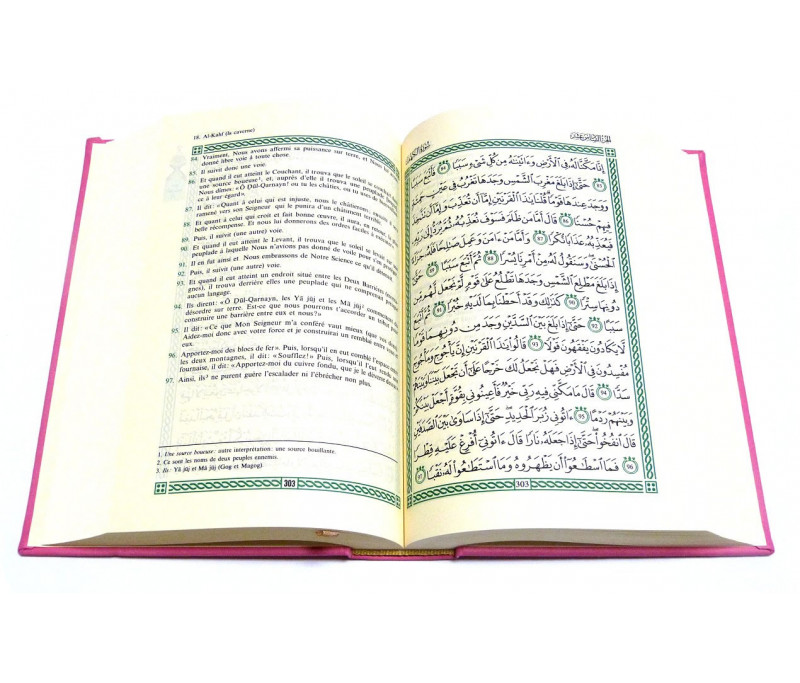 18. Al-Kahf (la caverne)
84. Vraiment, Nous avons affermi sa puissance sur terre, et Nous lui
donné libre voie à toute chose.
85. Il suivit donc une voie.
86. Et quand il eut atteint le Couchant, il trouva que le soleil se
une source boueuse¹, et, auprès d'elle il trouva une peuplade
Nous dîmes: «Ô Ḏûl-Qarnayn! ou tu les châties, ou tu uses de
ce à leur égard».
87. Il dit: «Quant à celui qui est injuste, nous le châtierons;
ramené vers son Seigneur qui le punira d'un châtiment
88. Et quant à celui qui croit et fait bonne œuvre, il aura, en
belle récompense. Et nous lui donnerons des ordres faciles à
89. Puis, il suivit (une autre) voie.
90. Et quand il eut atteint le Levant, il trouva que le soleil se levait sur
peuplade à laquelle Nous n'avions pas donné de voile pour s'en
91. Il en fut ainsi et Nous embrassons de Notre Science ce qu'il
92. Puis, il suivit (une autre) voie.
93. Et quand il eut atteint un endroit situé entre les Deux Barrières
gnes), il trouva derrière elles une peuplade qui ne comprenait
aucun langage.
94. Ils dirent: «Ô Ḏûl-Qarnayn, les Yâ jûj et les Mâ jûj²
désordre sur terre. Est-ce que nous pourrons t'accorder un tribut
construire une barrière entre eux et nous?»
95. Il dit: «Ce que Mon Seigneur m'a conféré vaut mieux
Aidez-moi donc avec votre force et je construirai un remblai entre vous et
eux.
96. Apportez-moi des blocs de fer». Puis, lorsqu'il en eut comblé l'espace
les deux montagnes, il dit: «Soufflez!» Puis, lorsqu'il l'eut rendu
fournaise, il dit: «Apportez-moi du cuivre fondu, que je le déverse
97. Ainsi, ils³ ne purent guère l'escalader ni l'ébrécher non plus.
1. Une source boueuse: autre interprétation: une source bouillante.
2. Ce sont les noms de deux peuples ennemis.
3. Ils: Yâ jûj et Mâ jûj (Gog et Magog).
303
سورة الكهف
الجزء السادس عشر
إِنَّا مَكَّنَّا لَهُۥ فِي ٱلْأَرْضِ وَءَاتَيْنَٰهُ مِن كُلِّ شَىْءٍ سَبَبًا 84 فَأَتْبَعَ سَبَبًا
85 حَتَّىٰٓ إِذَا بَلَغَ مَغْرِبَ ٱلشَّمْسِ وَجَدَهَا تَغْرُبُ فِي عَيْنٍ حَمِئَةٍ
وَوَجَدَ عِندَهَا قَوْمًا قُلْنَا يَٰذَا ٱلْقَرْنَيْنِ إِمَّآ أَن تُعَذِّبَ وَإِمَّآ أَن تَتَّخِذَ
فِيهِمْ حُسْنًا 86 قَالَ أَمَّا مَن ظَلَمَ فَسَوْفَ نُعَذِّبُهُۥ ثُمَّ يُرَدُّ إِلَىٰ رَبِّهِۦ
فَيُعَذِّبُهُۥ عَذَابًا نُّكْرًا 87 وَأَمَّا مَنْ ءَامَنَ وَعَمِلَ صَٰلِحًا فَلَهُۥ جَزَآءً
ٱلْحُسْنَىٰ وَسَنَقُولُ لَهُۥ مِنْ أَمْرِنَا يُسْرًا 88 ثُمَّ أَتْبَعَ سَبَبًا
89 حَتَّىٰٓ إِذَا بَلَغَ مَطْلِعَ ٱلشَّمْسِ وَجَدَهَا تَطْلُعُ عَلَىٰ قَوْمٍ لَّمْ نَجْعَل لَّهُم مِّن
دُونِهَا سِتْرًا 90 كَذَٰلِكَ وَقَدْ أَحَطْنَا بِمَا لَدَيْهِ خُبْرًا 91 ثُمَّ أَتْبَعَ
سَبَبًا 92 حَتَّىٰٓ إِذَا بَلَغَ بَيْنَ ٱلسَّدَّيْنِ وَجَدَ مِن دُونِهِمَا قَوْمًا
لَّا يَكَادُونَ يَفْقَهُونَ قَوْلًا 93 قَالُوا۟ يَٰذَا ٱلْقَرْنَيْنِ إِنَّ يَأْجُوجَ وَمَأْجُوجَ
مُفْسِدُونَ فِي ٱلْأَرْضِ فَهَلْ نَجْعَلُ لَكَ خَرْجًا عَلَىٰٓ أَن تَجْعَلَ بَيْنَنَا وَبَيْنَهُمْ
سَدًّا 94 قَالَ مَا مَكَّنِّي فِيهِ رَبِّي خَيْرٌ فَأَعِينُونِي بِقُوَّةٍ أَجْعَلْ بَيْنَكُمْ
وَبَيْنَهُمْ رَدْمًا 95 ءَاتُونِي زُبَرَ ٱلْحَدِيدِ حَتَّىٰٓ إِذَا سَاوَىٰ بَيْنَ ٱلصَّدَفَيْنِ
قَالَ ٱنفُخُوا۟ حَتَّىٰٓ إِذَا جَعَلَهُۥ نَارًا قَالَ ءَاتُونِيٓ أُفْرِغْ عَلَيْهِ قِطْرًا
96 فَمَا ٱسْطَٰعُوٓا۟ أَن يَظْهَرُوهُ وَمَا ٱسْتَطَٰعُوا۟ لَهُۥ نَقْبًا 97
303